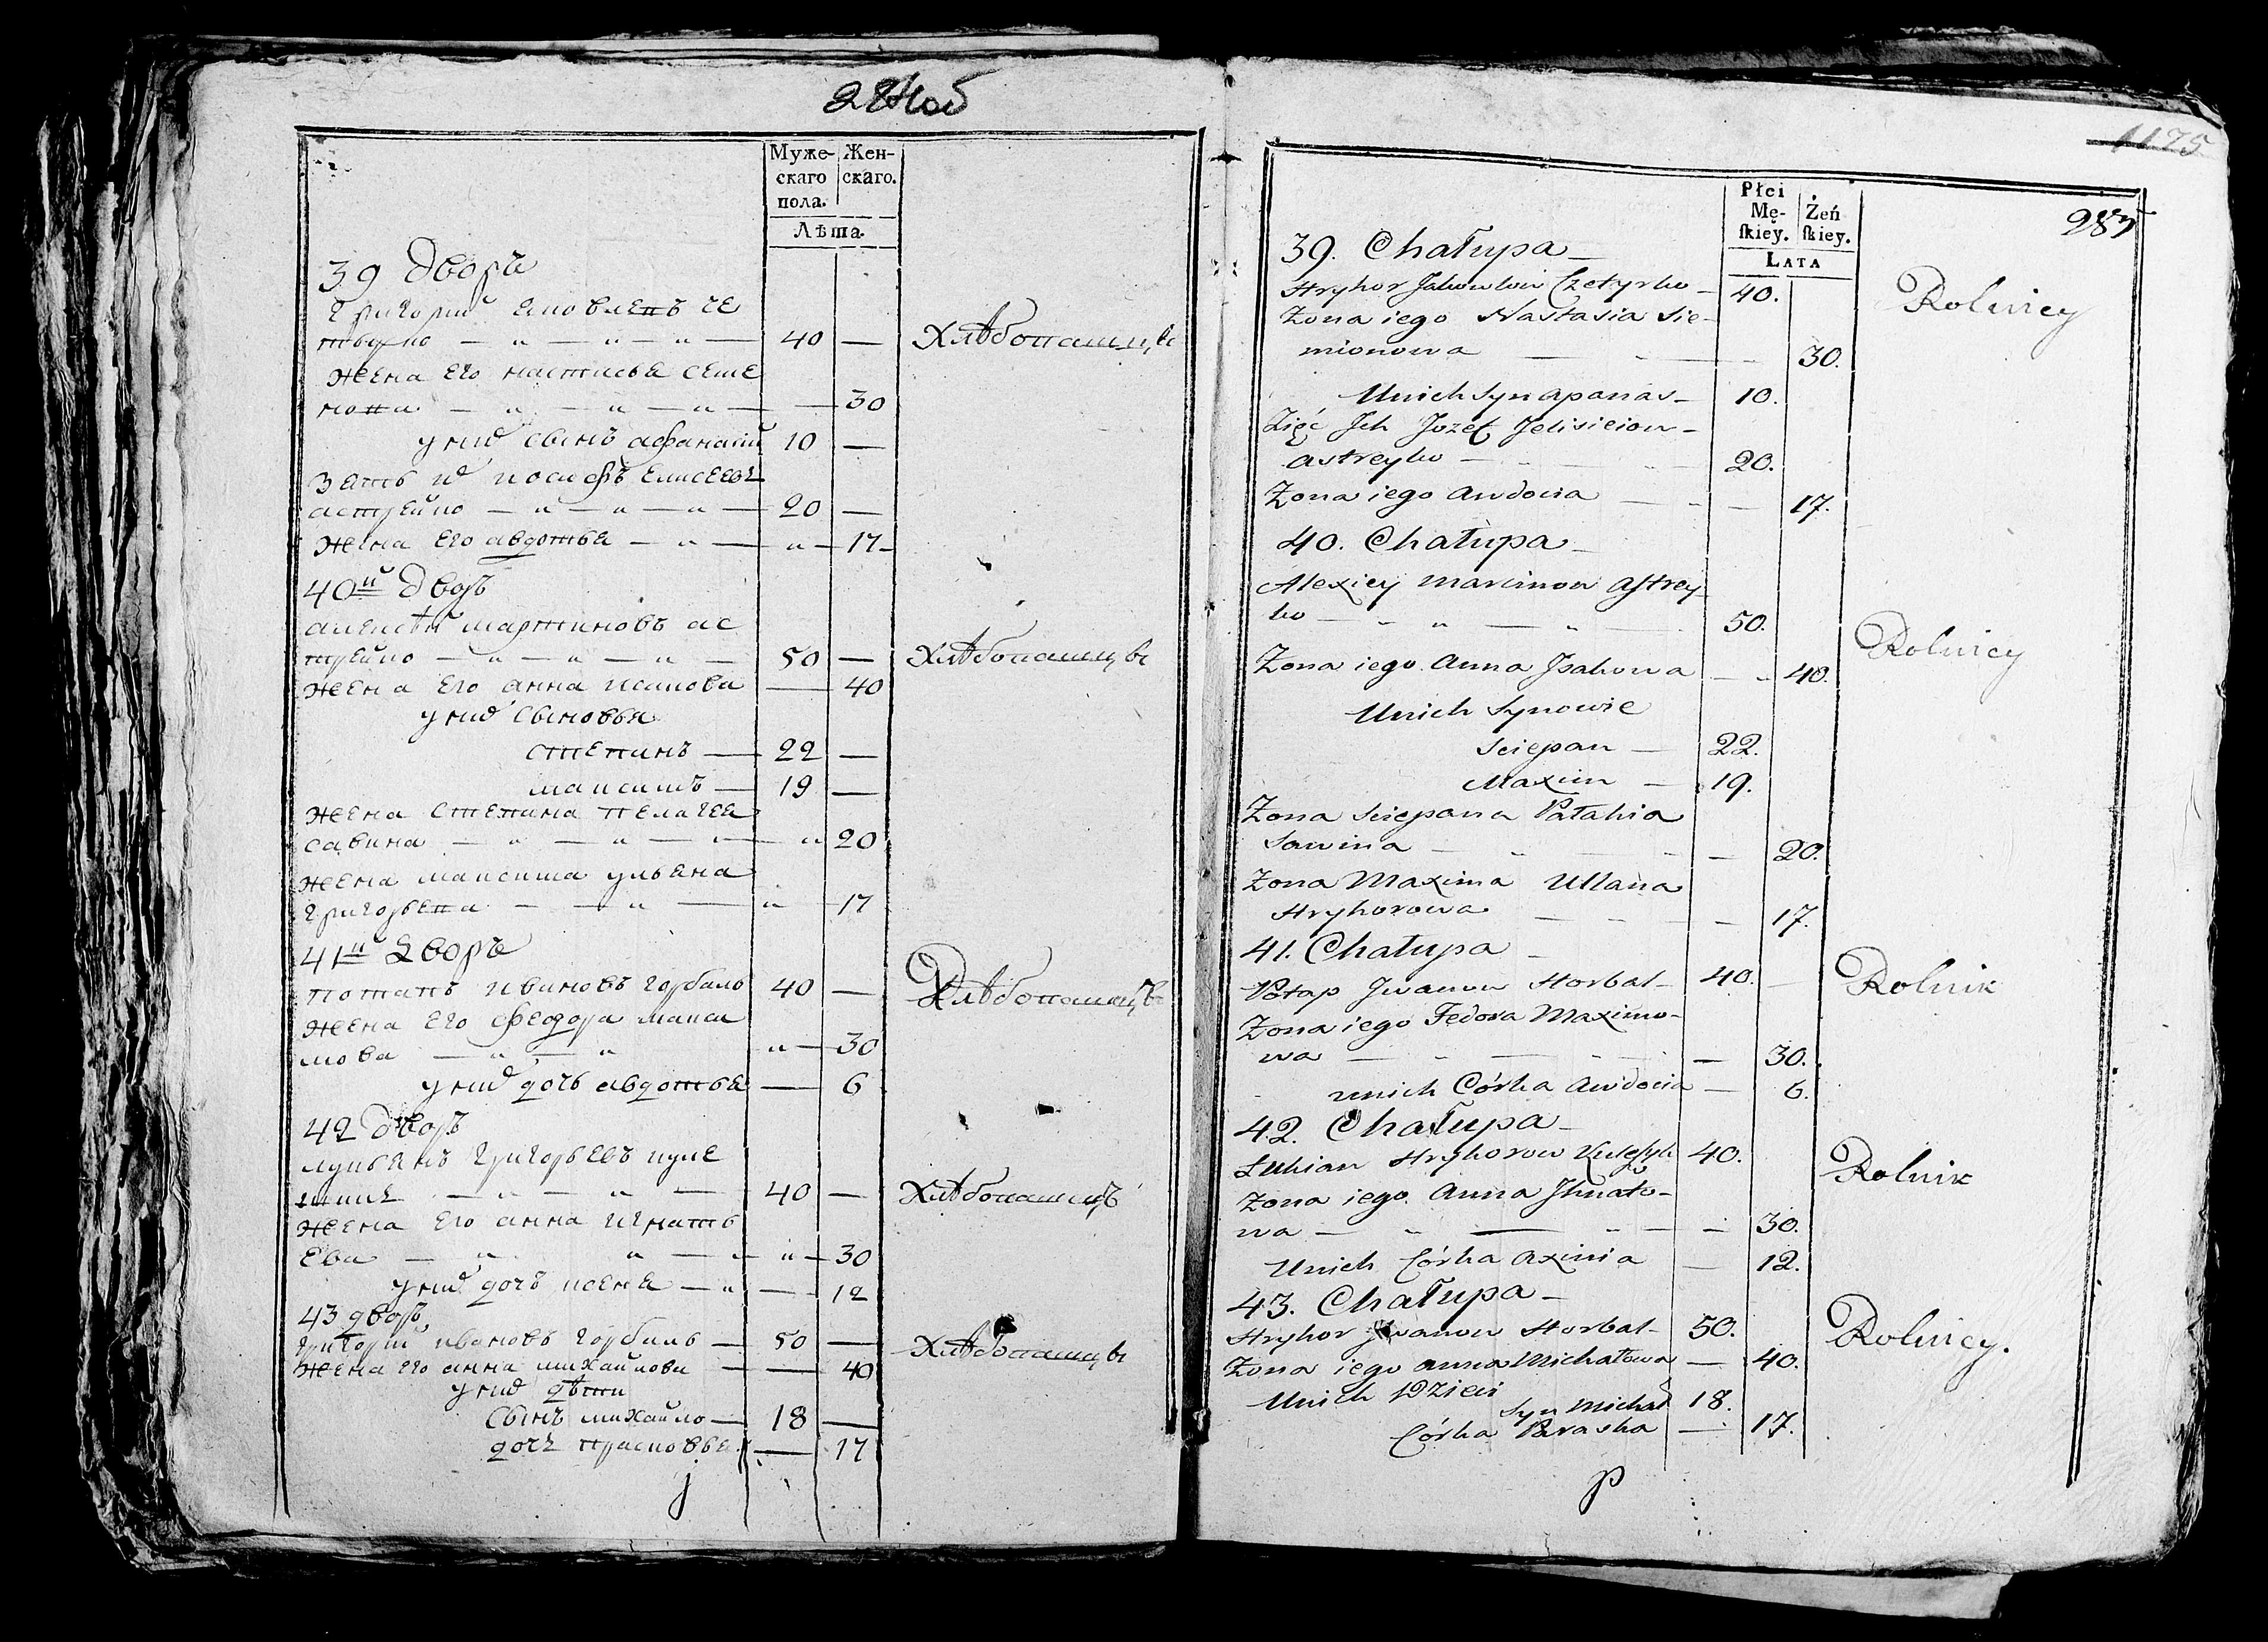 284об
Муже-
скаго
пола.
Жен-
скаго.
Лѣта.
39 дворъ
Григорий Яковлевъ Че
твурко — „ — „ — „ — 40 —
Хлѣбопашцы
жена его настасья семе
нова — „ — „ — „ — — 30
у них сынъ афанасий 10 —
зять их иосифъ Елисеевъ
астрейко — „ — „ — „ — 20 —
жена его авдотья — „ — „ — 17
40й дворъ
алексѣй мартиновъ ас
трейко — „ — „ — „ — 50 —
Хлѣбопашцы
жена его анна исакова — 40
у них сыновья
степанъ — 22 —
максимъ — 19 —
жена степана пелагея
савина — „ — „ — „ 20
жена максима ульяна
григорьева — „ — „ 17
41й дворъ
потапъ ивановъ горбаль 40 —
Хлѣбопашецъ
жена его федора макси
мова — „ — „ „ — 30
у них дочь авдотья — 6
42 дворъ
лукьянъ григорьевъ куле
40 —
Хлѣбопашецъ
жена его анна игнать
ева — „ „ — „ — 30
у них дочь ксеня — „ — 12
43 дворъ
григорий ивановъ горбаль — 50 —
Хлѣбопашцы
жена его анна михайлова — 40
у них дѣти
сынъ михайло — 18 —
дочь прасковья — 17
1175
287
Płci
Mę-
skiey.
Żeń
skiey.
LATA
39. Chałupa —
Hryhor Jakowlow Czetyrko — 40.
Rolnicy
Żona iego Nastasia Sie-
mionowa — — 30.
Unich Syn apanas — 10.
Zięć Ich Jozef Jelisieiow —
astreyko — 20.
Żona iego Awdocia — 17.
40. Chałupa —
Alexiey Marcinow Astrey-
ko — „ — „ — 50.
Rolnicy
Żona iego Anna Jsakowa — 40.
Unich Synowie
Sciepan — 22.
Maxim — 19.
Żona Sciepana Pałahia
Sawina — — 20.
Żona Maxima Ullana
Hryhorowa — — 17.
41. Chałupa —
Potap Jwanow Horbal — 40. —
Rolnik
Żona iego Fędora Maximo-
wa — — 30.
unich Córka Awdocia — 6.
42. Chałupa —
Łukian Hryhorow 40.
Rolnik
Żona iego Anna Jhnato-
wa — „ — „ — 30.
Unich Córka Axinia — 12.
43. Chałupa —
Hryhor Jwanow Horbal — 50.
Rolnicy.
Żona iego anna Michałowa — 40.
Unich Dzieci
Syn Michał 18.
Córka Paraska — 17.